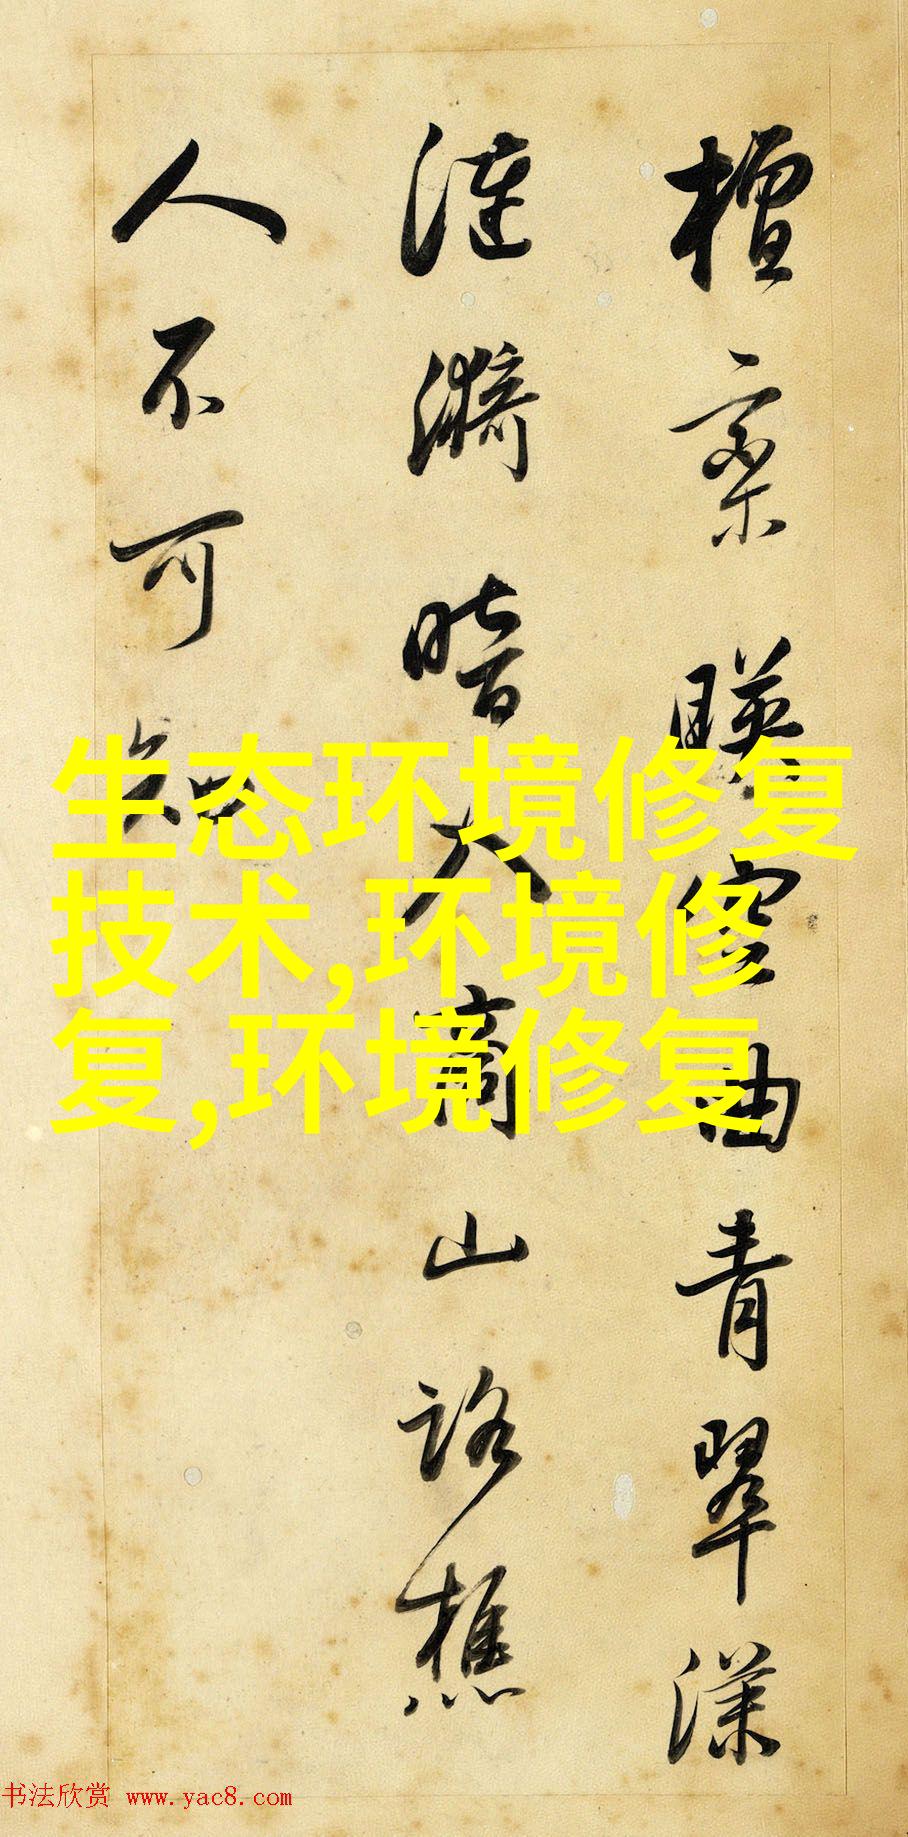 檀欒暎空曲青翠漾
漣漪暗入商山路樵
人不可知
生态环境修复
技术,环境修
复,环境修复
书法欣赏 www.yac8.com